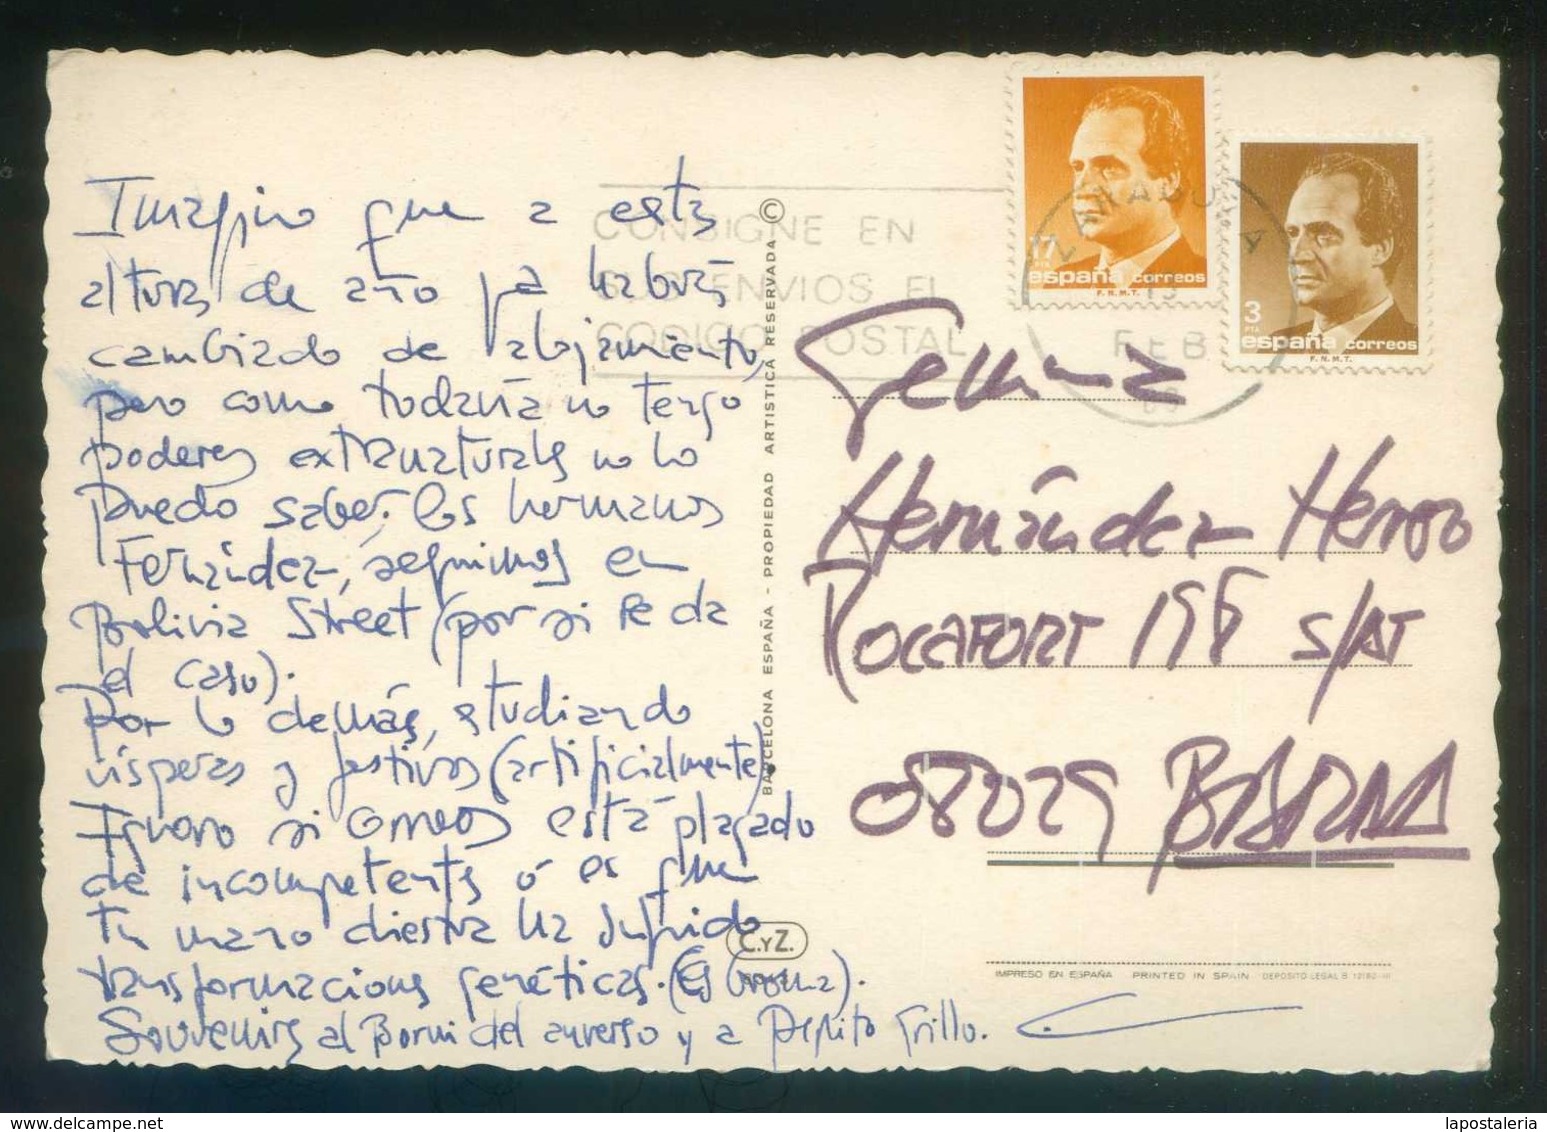 Imagino que a esta
altura de año ya habrás
cambiado de alojamiento,
pero como todavía no tengo
poderes extranaturales no lo
puedo saber, los hermanos
Fernández, seguimos en
Bolivia Street (por si se da
el caso).
Por lo demás, estudiando
vísperas y festivos (artificialmente)
Ignoro si correos está plagado
de incompetentes ó es que
tu mano diestra ha sufrido
transformaciones genéticas. (Es broma).
Souvenirs al Borni del anverso y a Pepito Grillo.
CONSIGNE EN
SUS ENVIOS EL
CODIGO POSTAL
©
BARCELONA ESPAÑA - PROPIEDAD ARTISTICA RESERVADA
C.YZ.
17
españa correos
F.N.M.T.
3
PTA
españa correos
F.N.M.T.
FEB
89
Gemma
Hernández Herrero
ROCAFORT 198 S/AT
08029 BARNA
IMPRESO EN ESPAÑA PRINTED IN SPAIN DEPOSITO LEGAL B
lapostaleria